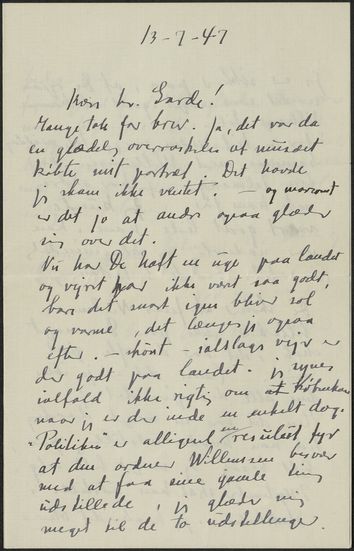 13-7-47
Kære hr. Garde!
Mange tak for brev. Ja, det var da
en glædelig overraskelse at museet
købte mit portræt. Det havde
jeg skam ikke ventet. — og morsomt
er det jo at andre ogsaa glæder
sig over det.
Nu har De haft en uge paa landet
og vejret har ikke været saa godt,
bare det snart igen bliver sol
og varme, det længes jeg ogsaa
efter. — skønt — ialslags vejr er
der godt paa landet. jeg synes
ialfald ikke rigtig om at København
naar jeg er der inde en enkelt dag.
"Politiken" er alligevel en fyr
at den ordner Willumsen besvær
med at faa sine gamle ting
udstillede, jeg glæder mig
meget til de to udstillinger.